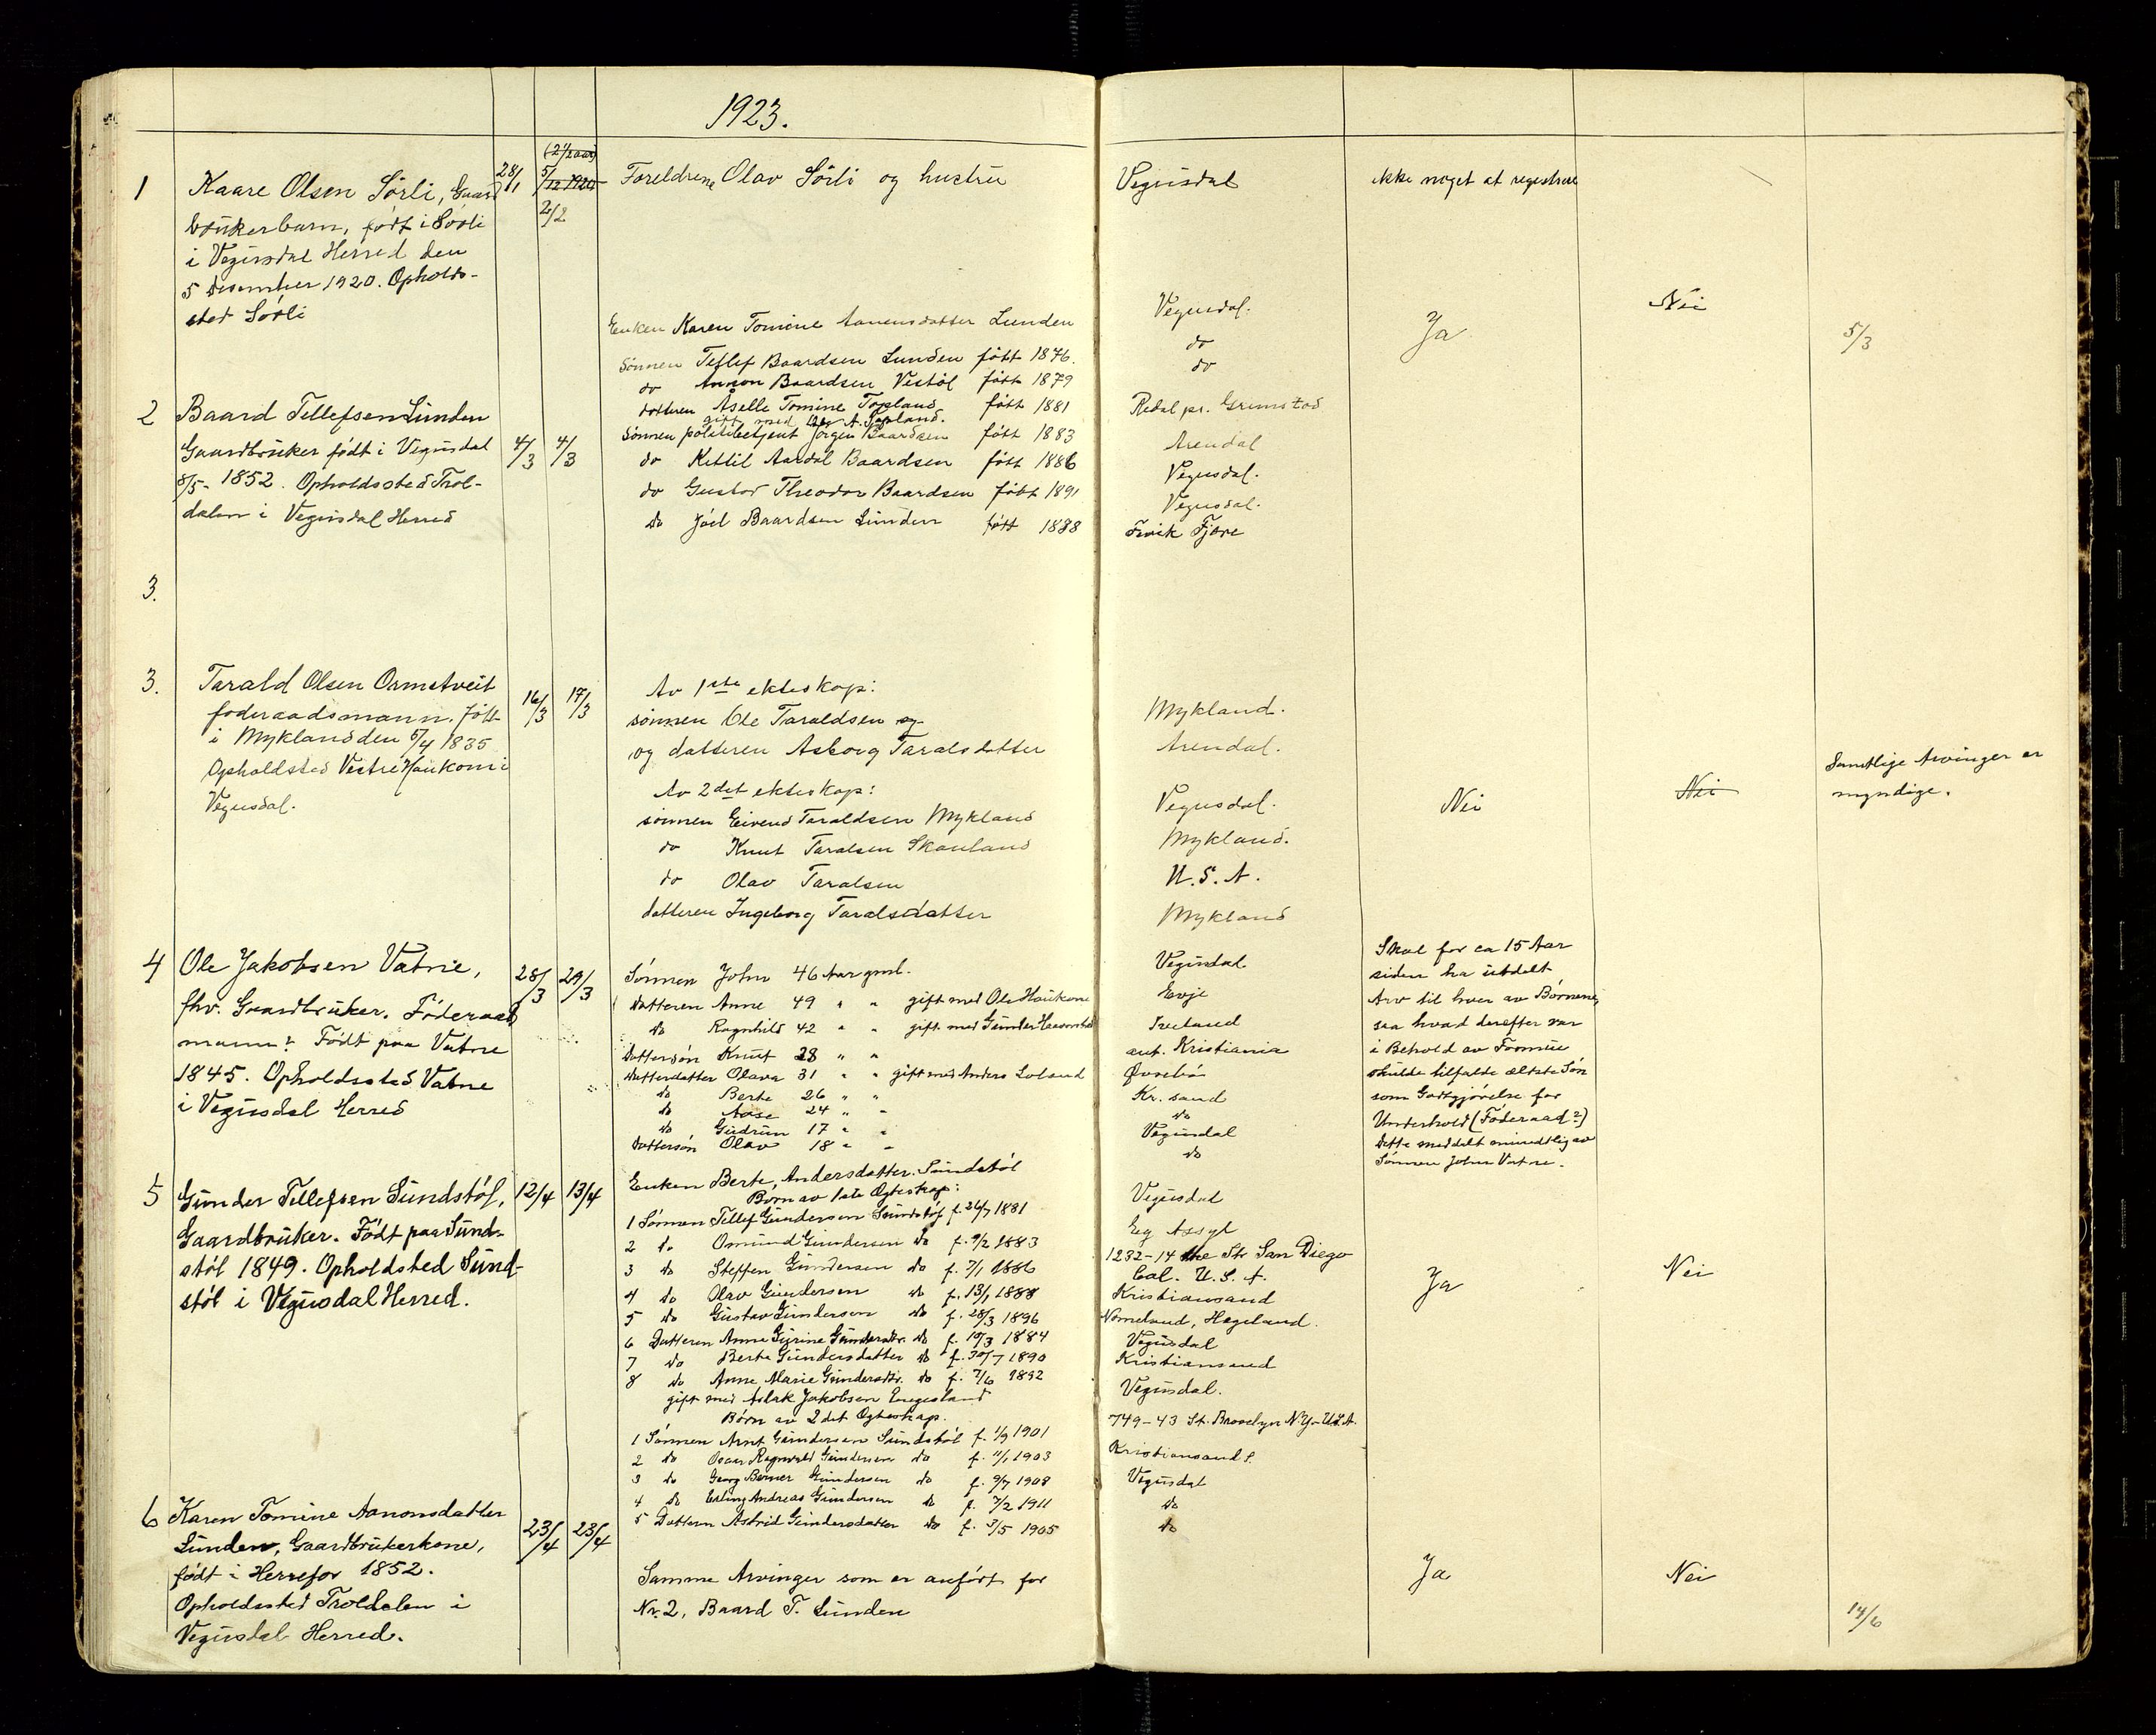 1923.
1
Kaare Olsen Sörli, Gaard
brukerbarn, født i Sörli
i Vegusdal Herred den
5 desember 1920. Opholds-
sted Sörli
28/1
(2 1/2 aar)
5/12 1920
2/2
Foreldrene Olav Sörli og hustru
Vegusdal
ikke noget at registrere
2
Baard Tellefsen Lunden
Gaardbruker født i Vegusdal
8/5- 1852. Opholdssted Trol-
dalen i Vegusdal Herred
4/3
4/3
Enken Karen Tomine Aanensdatter Lunden
Sønnen Tellef Baardsen Lunden født 1876.
do Aanon Baardsen Vestöl født 1879
datteren Aselle Tomine Topland født 1881
gift med A. Topland.
Sønnen politibetjent Jörgen Baardsen født 1883
do Kittil Aardal Baardsen født 1886
do Gustav Theodor Baardsen født 1891
do Jöel Baardsen Lunden født 1888
Vegusdal.
do
do
Redal pr. Grimstad
Arendal
Vegusdal.
Vegusdal.
Fevik Fjære
Ja
Nei
5/3
3.
3.
Tarald Olsen Ormstveit
foderaadsmann. Født
i Mykland den 5/4 1835
Opholdsted Vestre Haukom i
Vegusdal.
16/3
17/3
Av 1ste ekteskap:
sønnen Ole Taraldsen og
og datteren Asborg Taralsdatter
Av 2det ekteskap:
sønnen Eivend Taraldsen Mykland
do Knut Taralsen Skauland
do Olav Taralsen
datteren Ingeborg Taralsdatter
Mykland.
Arendal.
Vegusdal.
Mykland.
U.S.A.
Mykland
Nei
Nei
Samtlige Arvinger er
myndige.
4
Ole Jakobsen Vatne,
fhv. Gaardbruker. Föderaads
mann? Født paa Vatne
1845. Opholdssted Vatne
i Vegusdal Herred
28/3
29/3
Sønnen John 46 Aar gml.
Datteren Anne 49 " " gift med Ole Haukom
do Ragnhild 42 " " gift med Gunder
Dattersøn Knut 28 " "
Datterdatter Olava 31 " " gift med Anders Loland
do Berte 26 " "
do Aase 24 " "
do Gudrun 17 " "
Dattersøn Olav 18 " "
Vegusdal
Evje
Iveland
ant. Kristiania
Øvrebö
Kr. sand
do
Vegusdal
do
Skal for ca 15 Aar
siden ha utdelt
Arv til hver av Børnene,
saa hvad derefter var
i Behold av Formue
skulde tilfalde ældste Søn
som Godtgjörelse for
Underhold (Föderaad?)
Dette meddelt mundtlig av
Sønnen John Vatne.
5
Gunder Tellefsen Sundstöl,
Gaardbruker. Født paa Sund-
stöl 1849. Opholdsted Sund-
stöl i Vegusdal Herred.
12/4
13/4
Enken Berte, Andersdatter. Sundstöl
Børn av 1ste Ægteskap:
1 Sønnen Tellef Gundersen Sundstöl f. 26/7 1881
2 do Omund Gundersen do f. 9/2 1883
3 do Steffen Gundersen do f. 7/1 1886
4 do Olav Gundersen do f. 13/1 1888
5 do Gustav Gundersen do f. 28/3 1896
6 Datteren Anne Gurine Gundersdtr. do f. 10/3 1884
7 do Berte Gundersdatter do f. 30/7 1890
8 do Anne Marie Gundersdtr. do f. 7/6 1892
gift med Aslak Jakobsen Engesland
Børn av 2det Ægteskap.
1 Sønnen Arnt Gundersen Sundstöl f. 1/9 1901
2 do Oscar Ragnvald Gundersen do f. 11/1 1903
3 do Georg Berner Gundersen do f. 9/7 1908
4 do Erling Andreas Gundersen do f. 7/2 1911
5 Dattern Astrid Gundersdatter do f. 3/5 1905
Vegusdal
Eg Assyl
1232-14 the Str San Diego
Cal. U.S.A.
Kristiansand
Nomeland, Hægeland.
Vegusdal
Kristiansand
Vegusdal.
749-43 St. Brooclyn N.Y. U.S.A.
Kristiansand S.
Vegusdal
do
do
Ja
Nei
6
Karen Tomine Aanonsdatter
Lunden, Gaardbrukerkone,
født i Herrefos 1852.
Opholdssted Troldalen i
Vegusdal Herred.
23/4
23/4
Samme Arvinger som er anført for
Nr. 2, Baard T. Lunden
Ja
Nei
14/6